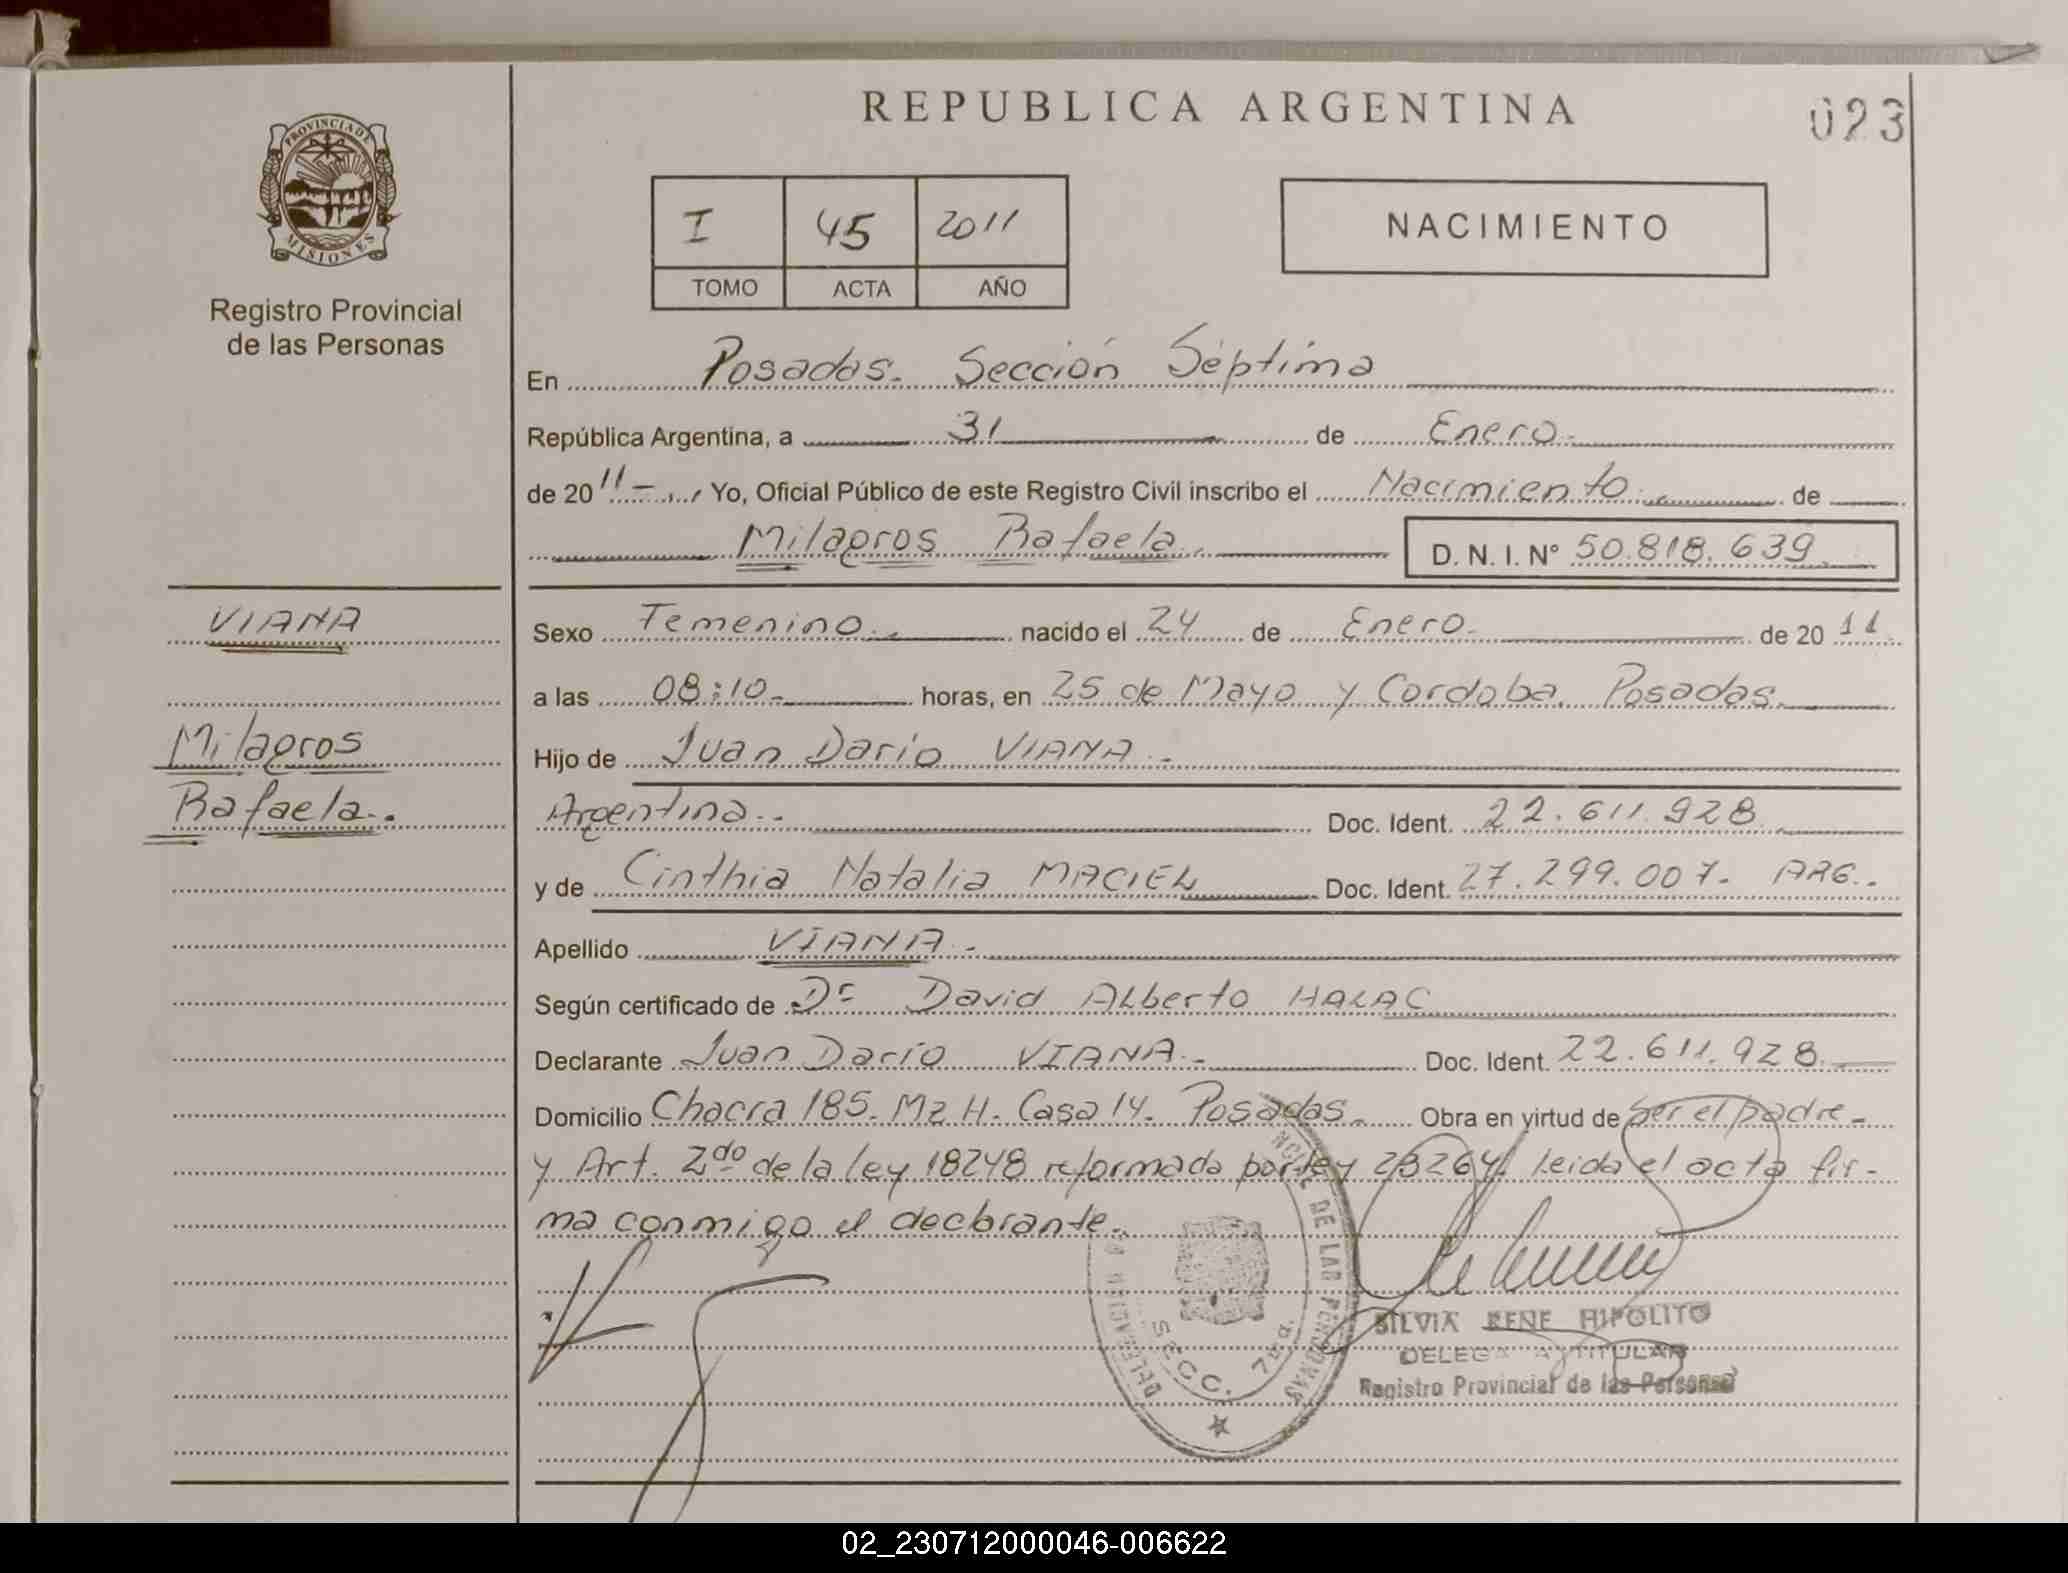 REPUBLICA ARGENTINA
023
PROVINCIA DE
MISIONES
Registro Provincial
de las Personas
I 45 2011
TOMO ACTA AÑO
NACIMIENTO
En Posadas. Sección Séptima
República Argentina, a 31 de Enero.
de 2011 Yo, Oficial Público de este Registro Civil inscribo el Nacimiento. de
Milagros Rafaela. D. N. I. Nº 50.818.639
VIANA
Milagros
Rafaela.
Sexo Femenino. nacido el 24 de Enero. de 2011
a las 08:10 horas, en 25 de Mayo y Cordoba. Posadas.
Hijo de Juan Dario VIANA.
Argentina. Doc. Ident. 22.611.928
y de Cinthia Natalia MACIEL Doc. Ident. 27.299.007. ARG.
Apellido VIANA.
Según certificado de Dr David Alberto HALAC
Declarante Juan Dario VIANA. Doc. Ident. 22.611.928
Domicilio Chacra 185. Mz H. Casa 14. Posadas. Obra en virtud de ser el padre
y Art. 2do de la ley 18248 reformada por ley 23264. leida el acta fir-
ma conmigo el declarante.
DE LAS PERSONAS
SECC. 7ma.
SILVIA RENE HIPOLITO
DELEGADA TITULAR
Registro Provincial de las Personas
02_230712000046-006622